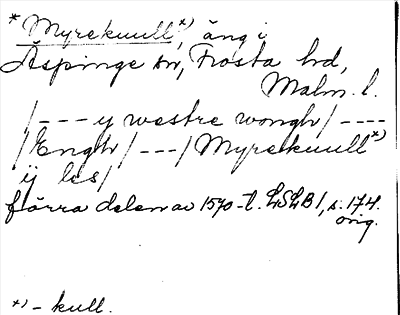 * Myrekuull*), äng i
Äspinge sn, Frosta hd,
Malm. l.
/--- y westre wongh/ ----
/Engh/ ---/ Myrekuull*)
ij les/
förra delen av 1570-t. LSLB I, s. 174.
orig.
*) - kull.